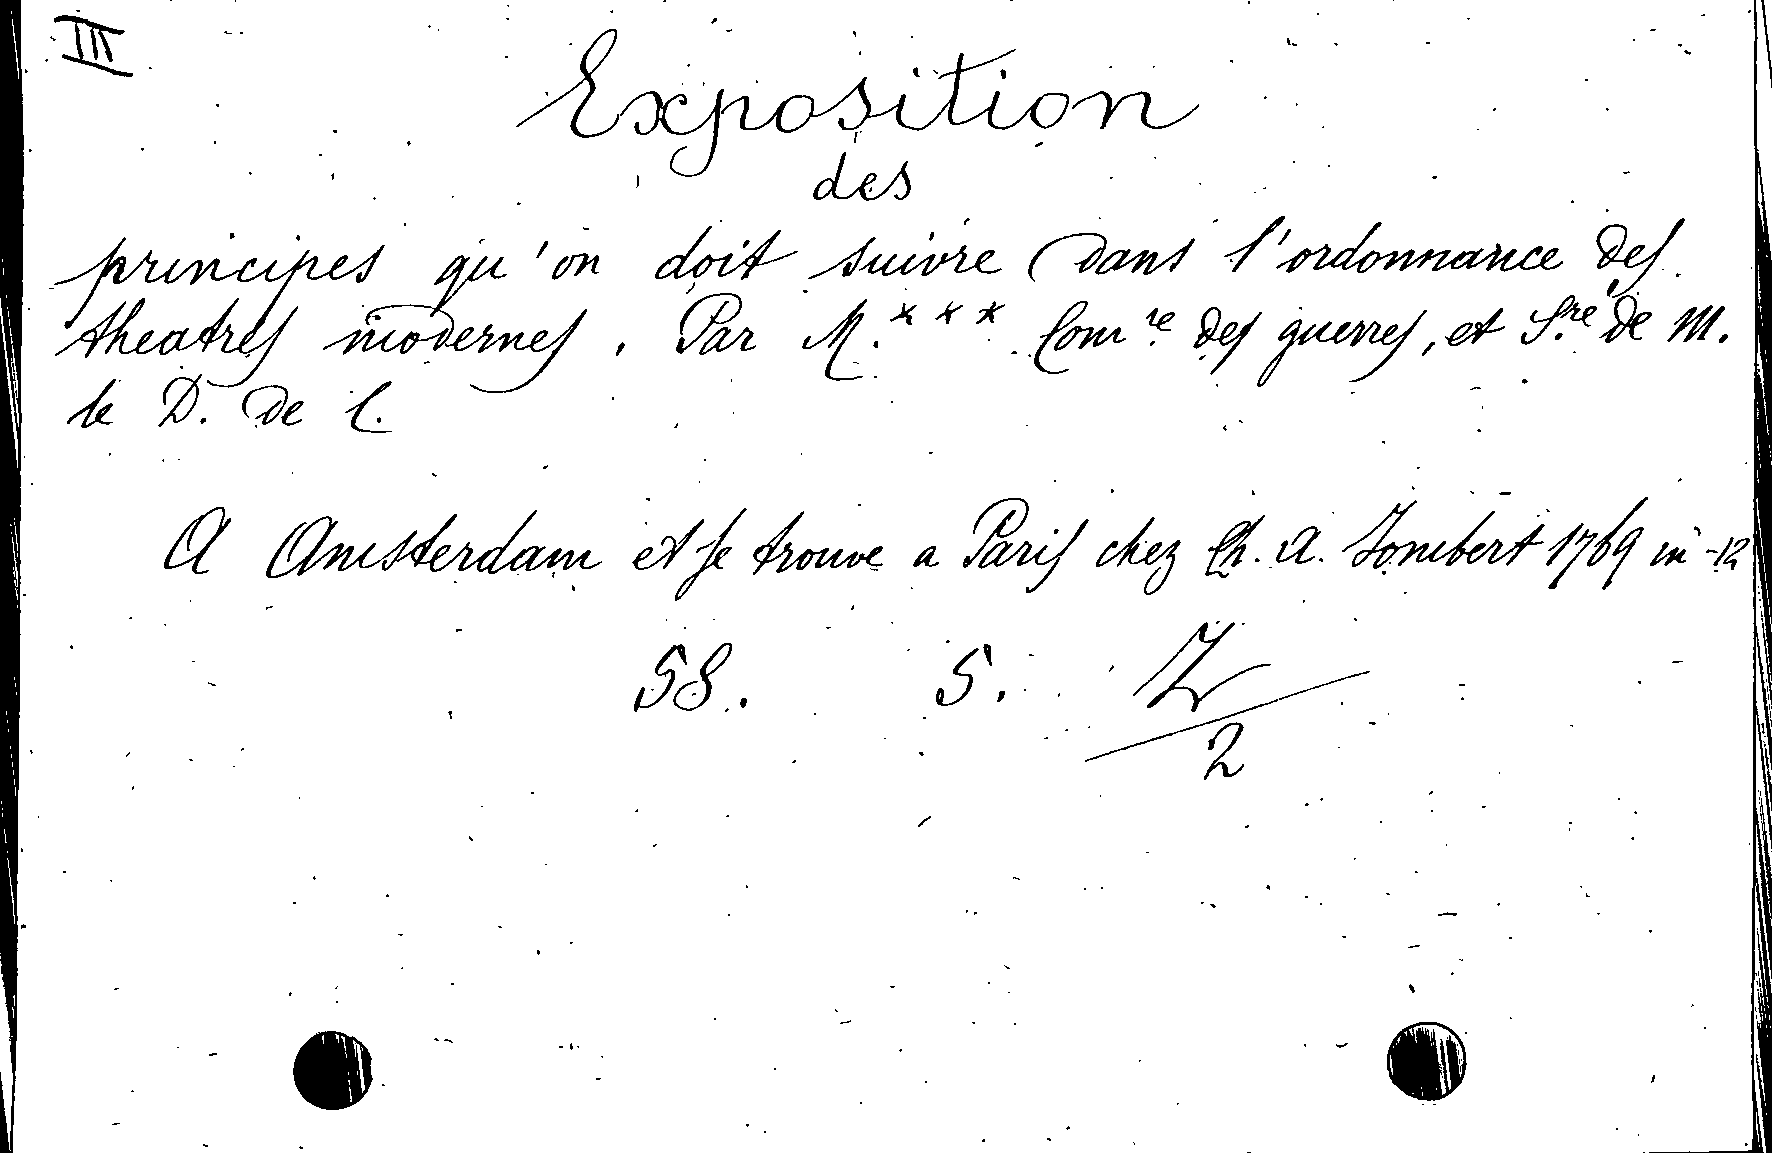 III
Exposition
des
principes qu'on doit suivre dans l'ordonnance des
theatres modernes. Par M.*** Comre des guerres, et S.re de M.
le D. de C.
A Amsterdam et se trouve a Paris chez Ch. A. Jombert 1769 in-12
58. 5.
2